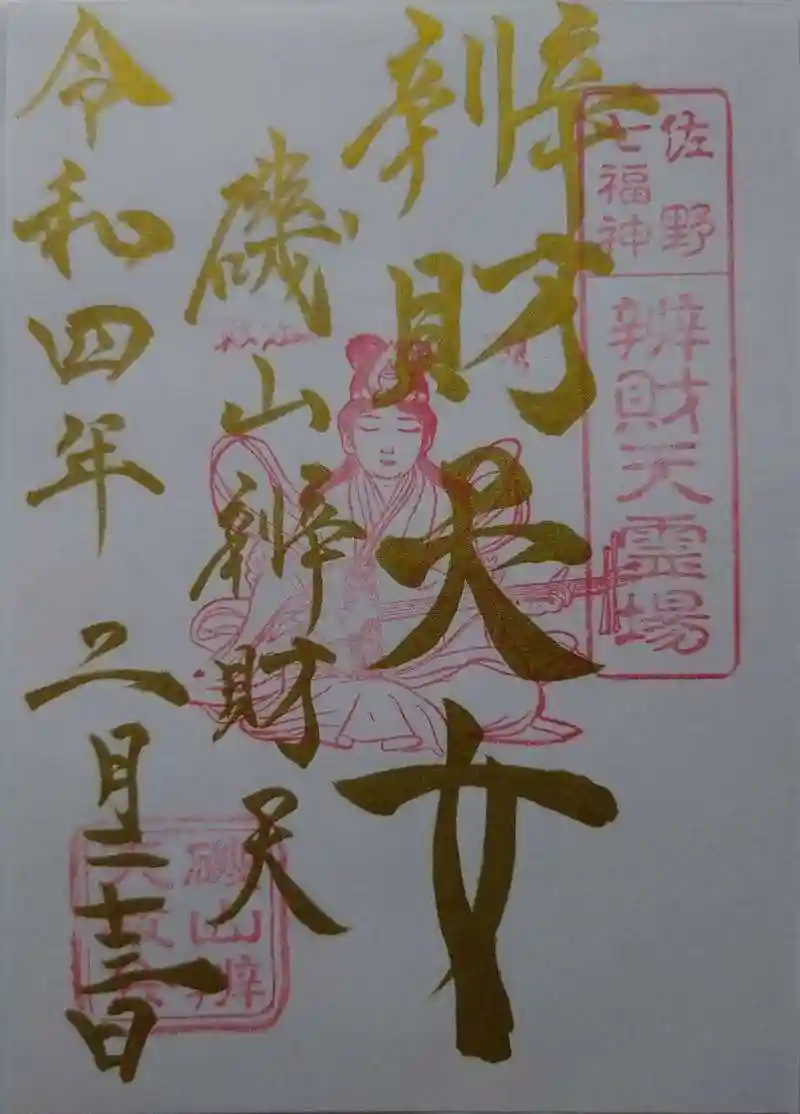 佐野
七福神
辨財天霊場
辨財天女
磯山辨財天
令和四年二月二十三日
磯山辨